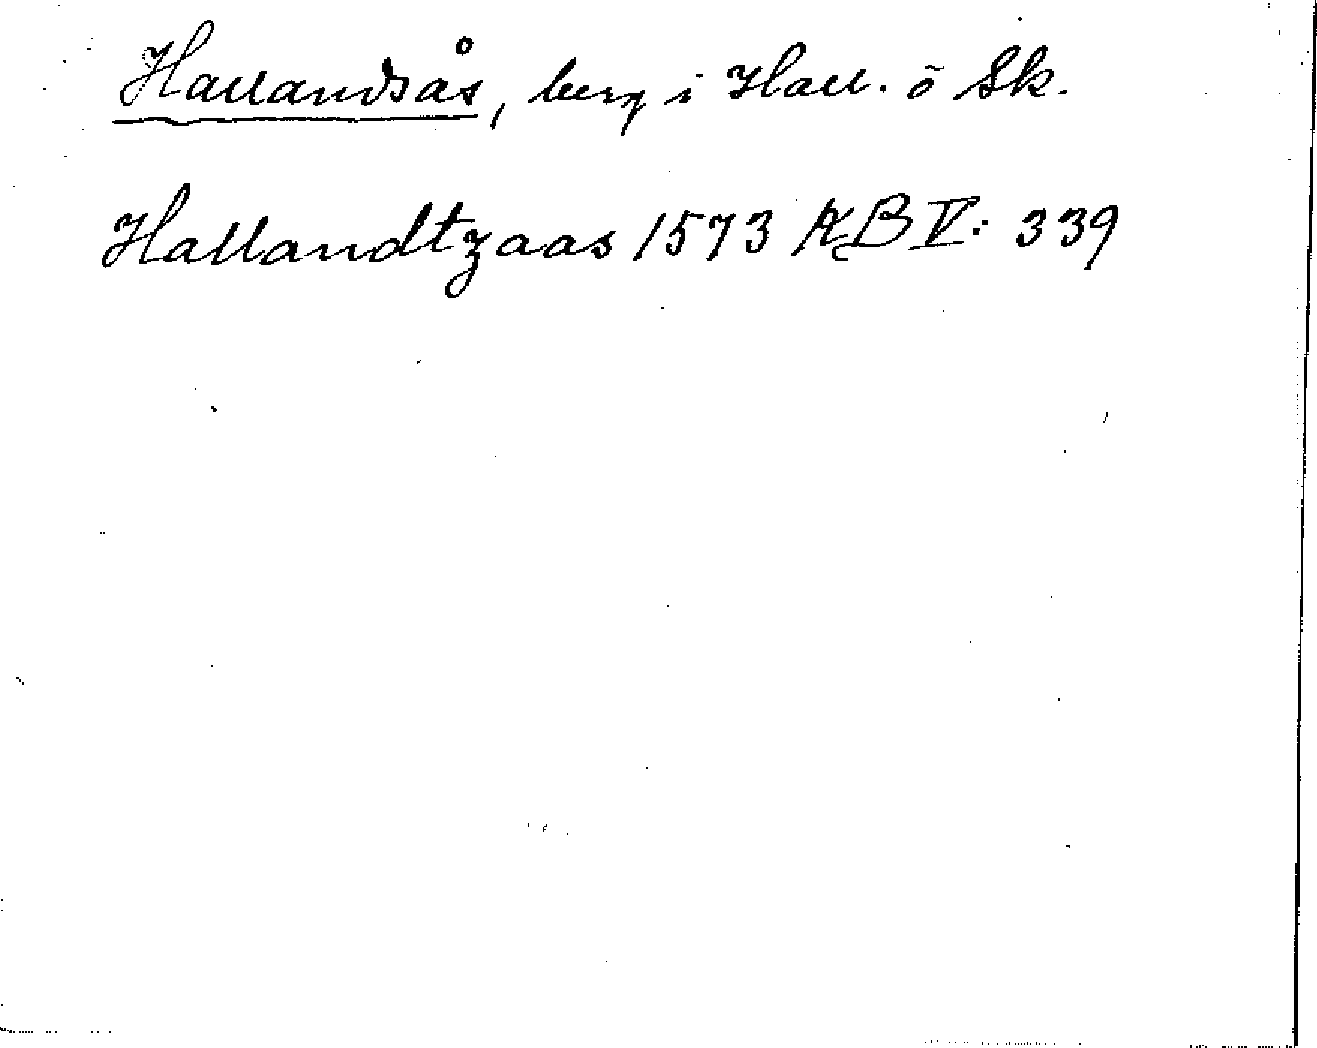 Hallandsås, berg i Hall. o Sk.
Hallandtzaas 1573 KB V: 339